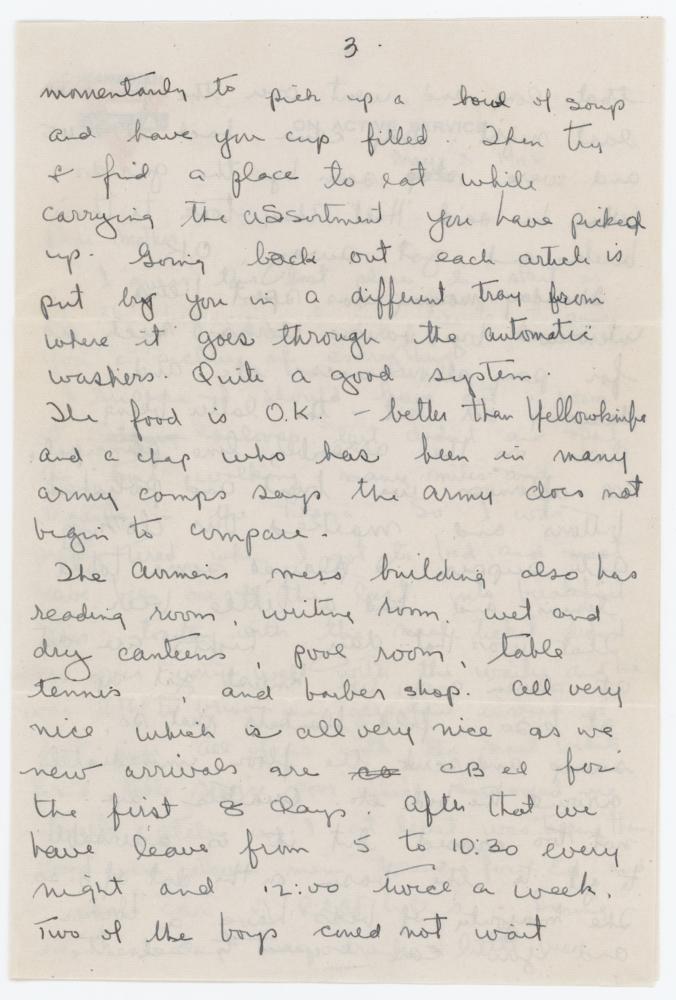 3.
momentarily to pick up a bowl of soup
and have you cup filled. Then try
& find a place to eat while
carrying the assortment you have picked
up. Going back out each article is
put by you in a different tray from
where it goes through the automatic
washers. Quite a good system.
The food is O.K. - better than Yellowknife
and a chap who has been in many
army camps says the army does not
begin to compare.
The Airmen's mess building also has
reading room, writing room, wet and
dry canteens, pool room, table
tennis, and barber shop. All very
nice which is all very nice as we
new arrivals are CB ed for
the first 8 days. After that we
have leave from 5 to 10:30 every
night and 12:00 twice a week.
Two of the boys could not wait